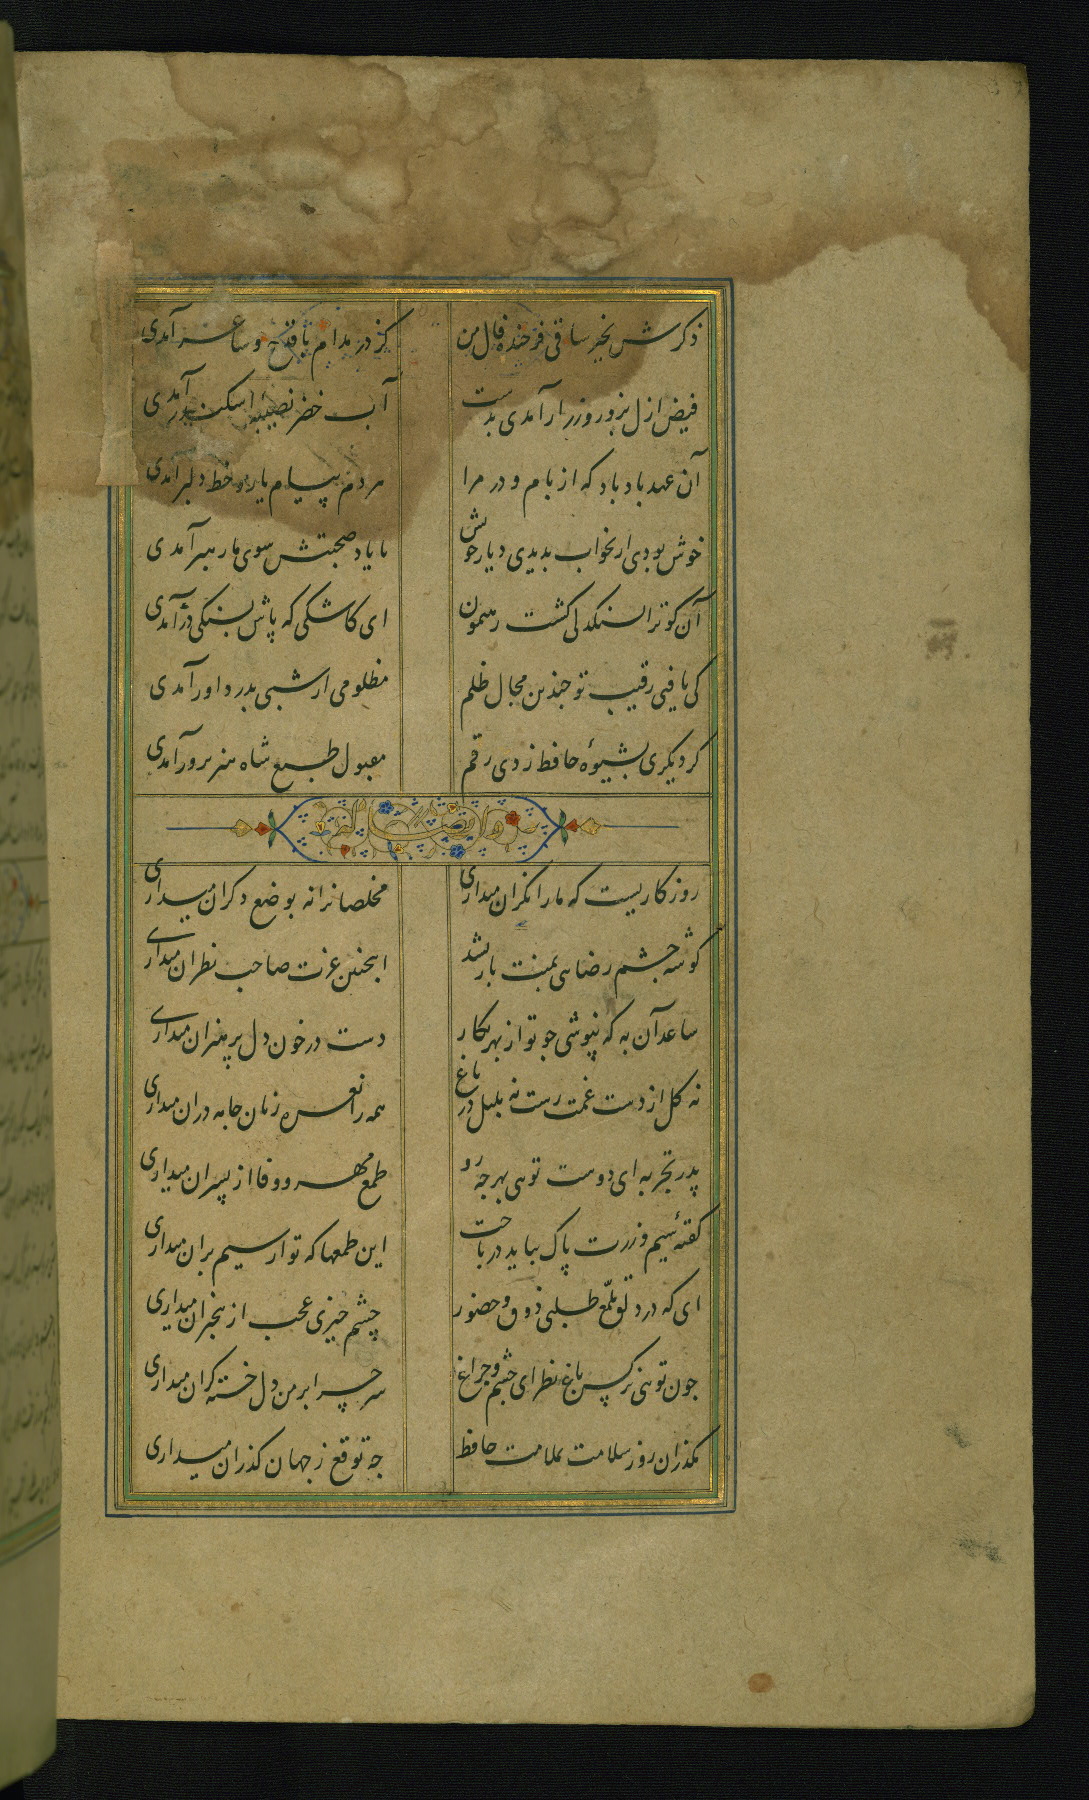 ذکرش بخیر ساقی فرخنده فال من کز در مدام با قدح و ساغر آمدی
فیض ازل بزور و زر ار آمدی بدست آب خضر نصیبه اسکندر آمدی
آن عهد یاد باد که از بام و در مرا هر دم پیام یار و خط دلبر آمدی
خوش بودی ار بخواب بدیدی دیار خویش تا یاد صحبتش سوی ما رهبر آمدی
آن کو ترا بسنکدلی کشت رهنمون ای کاشکی که پاش بسنکی در آمدی
کی یافتی رقیب تو چندین مجال ظلم مظلومی ار شبی بدر داور آمدی
کر دیکری بشیوهٔ حافظ زدی رقم مقبول طبع شاه هنرپرور آمدی
روزکاریست که ما را نکران میداری مخلصانرا نه بوضع دکران میداری
کوشه چشم رضایی بمنت باز نشد اینچنین عزت صاحب نظران میداری
ساعد آن به که بپوشی چو تو از بهر نکار دست در خون دل پرهنران میداری
نه کل از دست غمت رست نه بلبل در باغ همه را نعره زنان جامه دران میداری
پدر تجربه ای دوست تویی بهر چه رو طمع مهر و وفا از پسران میداری
کفتهٔ سیم و زرت پاک بباید درباخت این طمعها که تو از سیم بران میداری
ای که در دلق ملمّع طلبی ذوق و حضور چشم خیری عجب از بیخبران میداری
چون تویی نرکس باغ نظر ای چشم و چراغ سر چرا بر من دل خسته کران میداری
مکذران روز سلامت بملامت حافظ چه توقع ز جهان کذران میداری